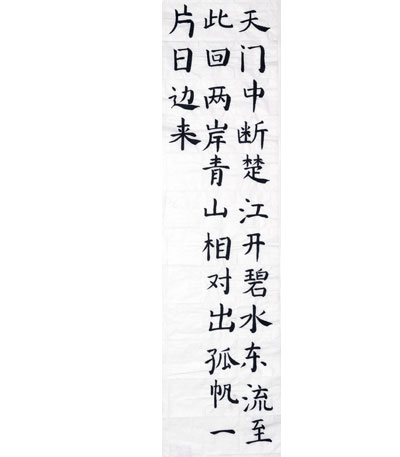 天门中断楚江开碧水东流至
此回两岸青山相对出孤帆一
片日边来